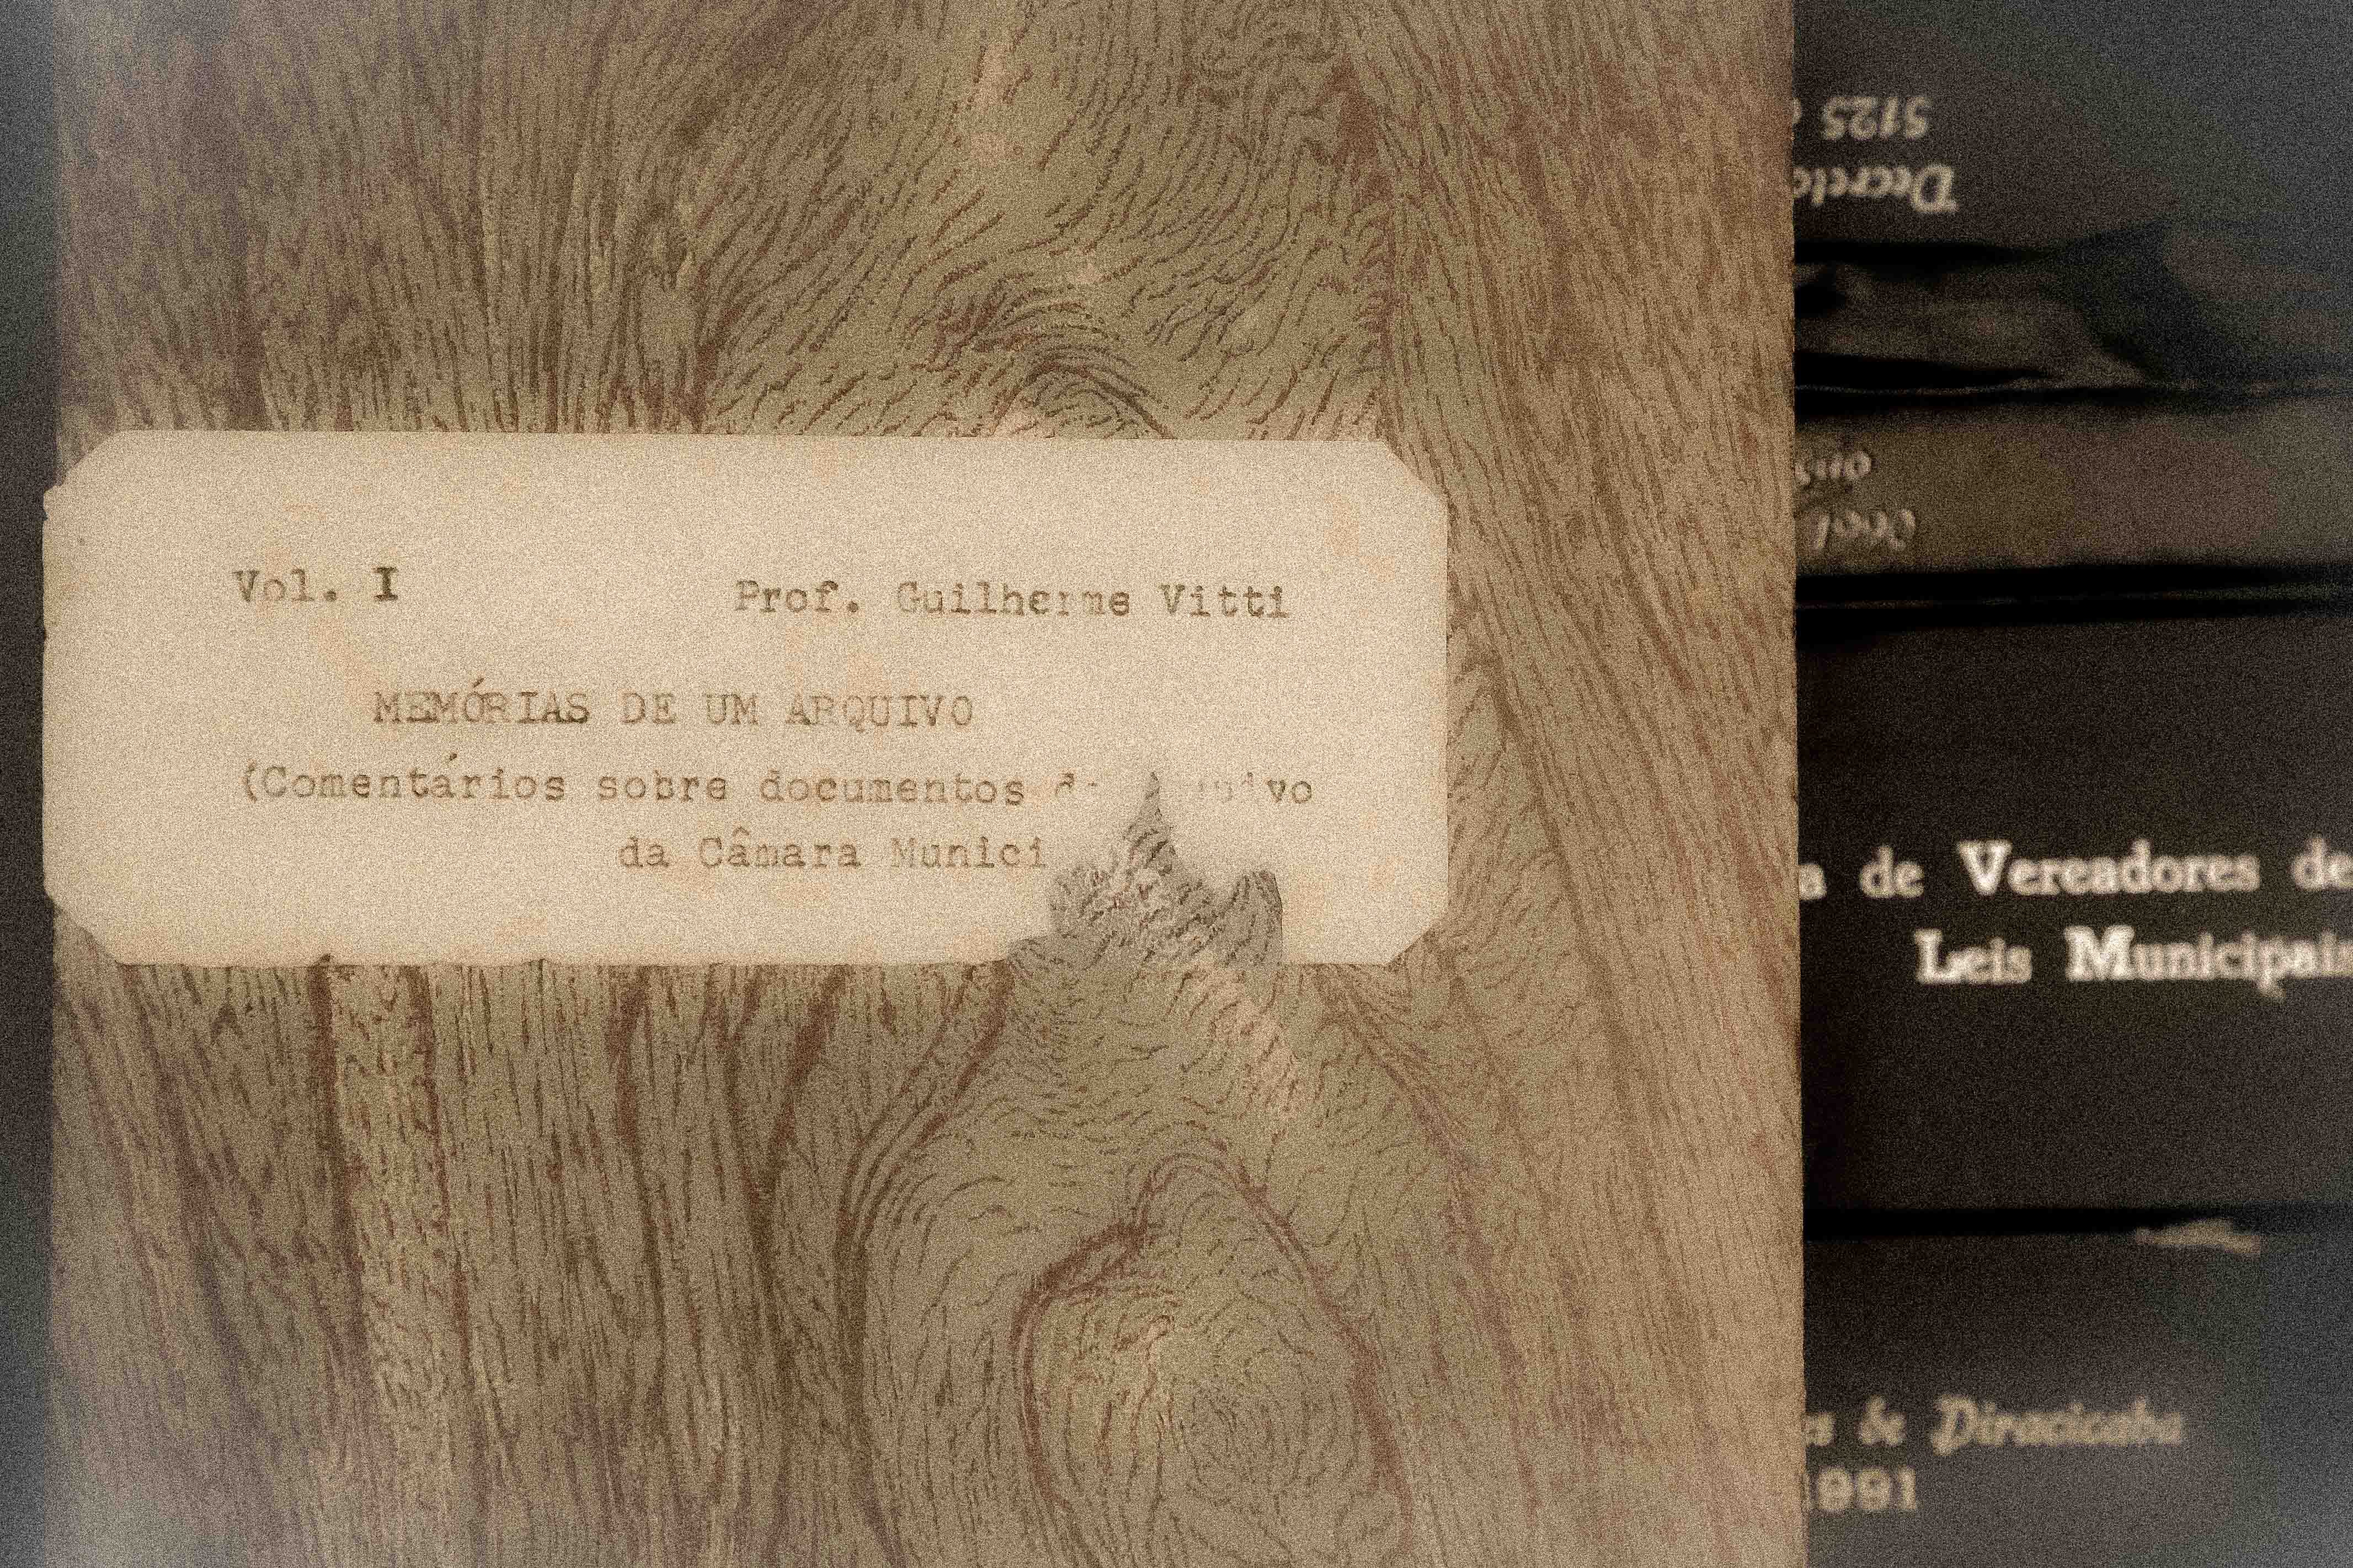 Vol. I Prof. Guilherme Vitti
MEMÓRIAS DE UM ARQUIVO
(Comentários sobre documentos
da Câmara Munici
5125
Decreto
de Vereadores de
Leis Municipais
de Piracicaba
1991